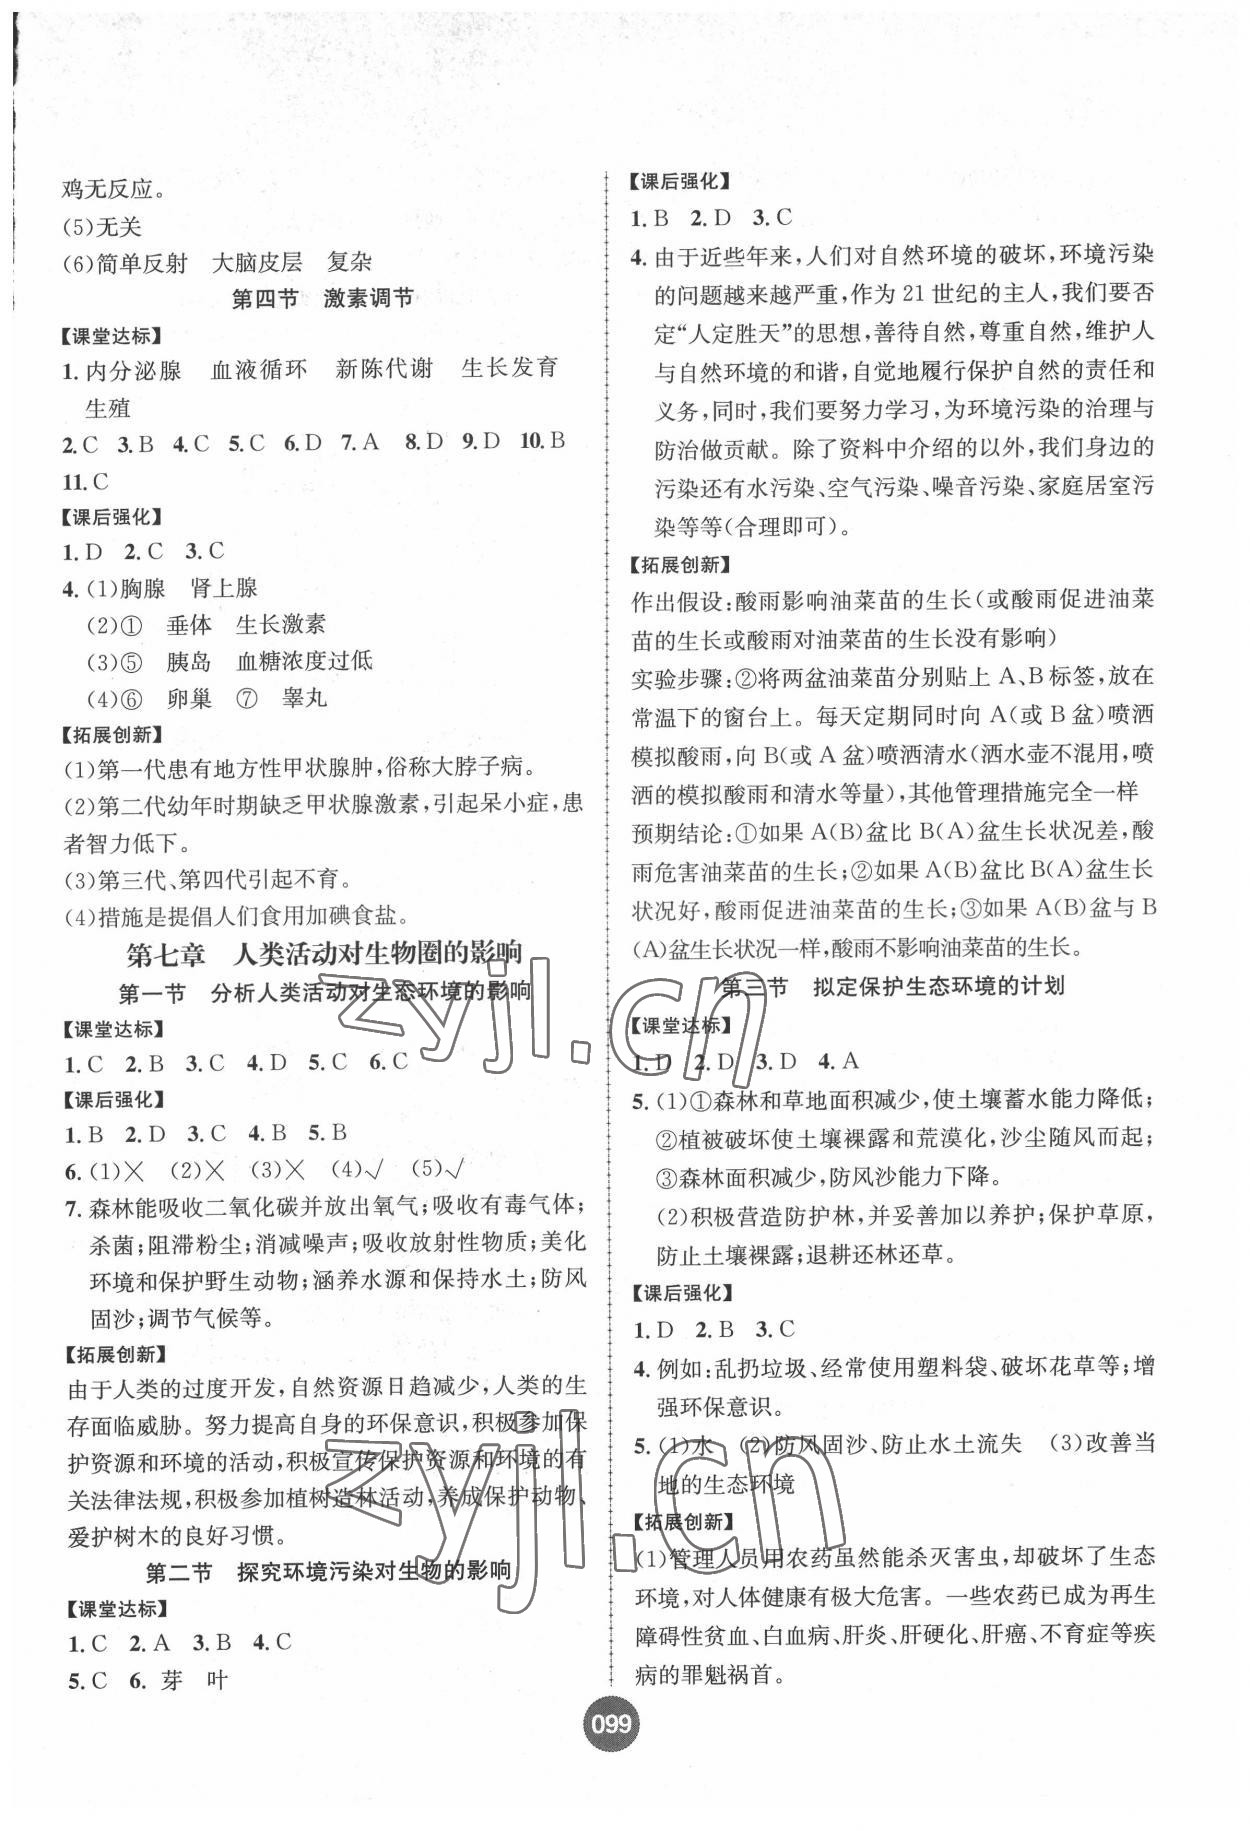 鸡无反应。
(5)无关
(6)简单反射 大脑皮层 复杂
第四节 激素调节
【课堂达标】
1.内分泌腺 血液循环 新陈代谢 生长发育
生殖
2.C 3.B 4.C 5.C 6.D 7.A 8.D 9.D 10.B
11.C
【课后强化】
1.D 2.C 3.C
4.(1)胸腺 肾上腺
(2)① 垂体 生长激素
(3)⑤ 胰岛 血糖浓度过低
(4)⑥ 卵巢 ⑦ 睾丸
【拓展创新】
(1)第一代患有地方性甲状腺肿,俗称大脖子病。
(2)第二代幼年时期缺乏甲状腺激素,引起呆小症,患
者智力低下。
(3)第三代、第四代引起不育。
(4)措施是提倡人们食用加碘食盐。
第七章 人类活动对生物圈的影响
第一节 分析人类活动对生态环境的影响
【课堂达标】
1.C 2.B 3.C 4.D 5.C 6.C
【课后强化】
1.B 2.D 3.C 4.B 5.B
6.(1)× (2)× (3)× (4)√ (5)√
7.森林能吸收二氧化碳并放出氧气;吸收有毒气体;
杀菌;阻滞粉尘;消减噪声;吸收放射性物质;美化
环境和保护野生动物;涵养水源和保持水土;防风
固沙;调节气候等。
【拓展创新】
由于人类的过度开发,自然资源日趋减少,人类的生
存面临威胁。努力提高自身的环保意识,积极参加保
护资源和环境的活动,积极宣传保护资源和环境的有
关法律法规,积极参加植树造林活动,养成保护动物、
爱护树木的良好习惯。
第二节 探究环境污染对生物的影响
【课堂达标】
1.C 2.A 3.B 4.C
5.C 6.芽 叶
【课后强化】
1.B 2.D 3.C
4.由于近些年来,人们对自然环境的破坏,环境污染
的问题越来越严重,作为21世纪的主人,我们要否
定“人定胜天”的思想,善待自然,尊重自然,维护人
与自然环境的和谐,自觉地履行保护自然的责任和
义务,同时,我们要努力学习,为环境污染的治理与
防治做贡献。除了资料中介绍的以外,我们身边的
污染还有水污染、空气污染、噪音污染、家庭居室污
染等等(合理即可)。
【拓展创新】
作出假设:酸雨影响油菜苗的生长(或酸雨促进油菜
苗的生长或酸雨对油菜苗的生长没有影响)
实验步骤:②将两盆油菜苗分别贴上A、B标签,放在
常温下的窗台上。每天定期同时向A(或B盆)喷洒
模拟酸雨,向B(或A盆)喷洒清水(洒水壶不混用,喷
洒的模拟酸雨和清水等量),其他管理措施完全一样
预期结论:①如果A(B)盆比B(A)盆生长状况差,酸
雨危害油菜苗的生长;②如果A(B)盆比B(A)盆生长
状况好,酸雨促进油菜苗的生长;③如果A(B)盆与B
(A)盆生长状况一样,酸雨不影响油菜苗的生长。
第三节 拟定保护生态环境的计划
【课堂达标】
1.D 2.D 3.D 4.A
5.(1)①森林和草地面积减少,使土壤蓄水能力降低;
②植被破坏使土壤裸露和荒漠化,沙尘随风而起;
③森林面积减少,防风沙能力下降。
(2)积极营造防护林,并妥善加以养护;保护草原,
防止土壤裸露;退耕还林还草。
【课后强化】
1.D 2.B 3.C
4.例如:乱扔垃圾、经常使用塑料袋、破坏花草等;增
强环保意识。
5.(1)水 (2)防风固沙、防止水土流失 (3)改善当
地的生态环境
【拓展创新】
(1)管理人员用农药虽然能杀灭害虫,却破坏了生态
环境,对人体健康有极大危害。一些农药已成为再生
障碍性贫血、白血病、肝炎、肝硬化、肝癌、不育症等疾
病的罪魁祸首。
099
zyjl.cn
zyjl.cn